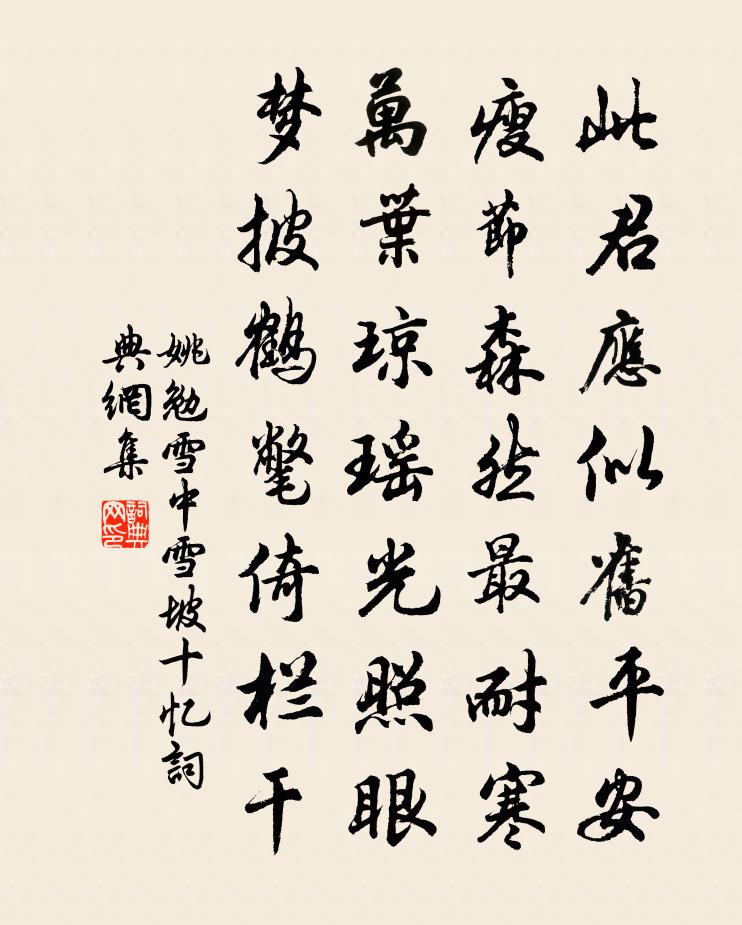 此君應似舊平安
瘦節森然最耐寒
萬葉琼瑶光照眼
梦披鶴氅倚栏干
姚勉雪中雪坡十忆詞
典網集
詞典网印